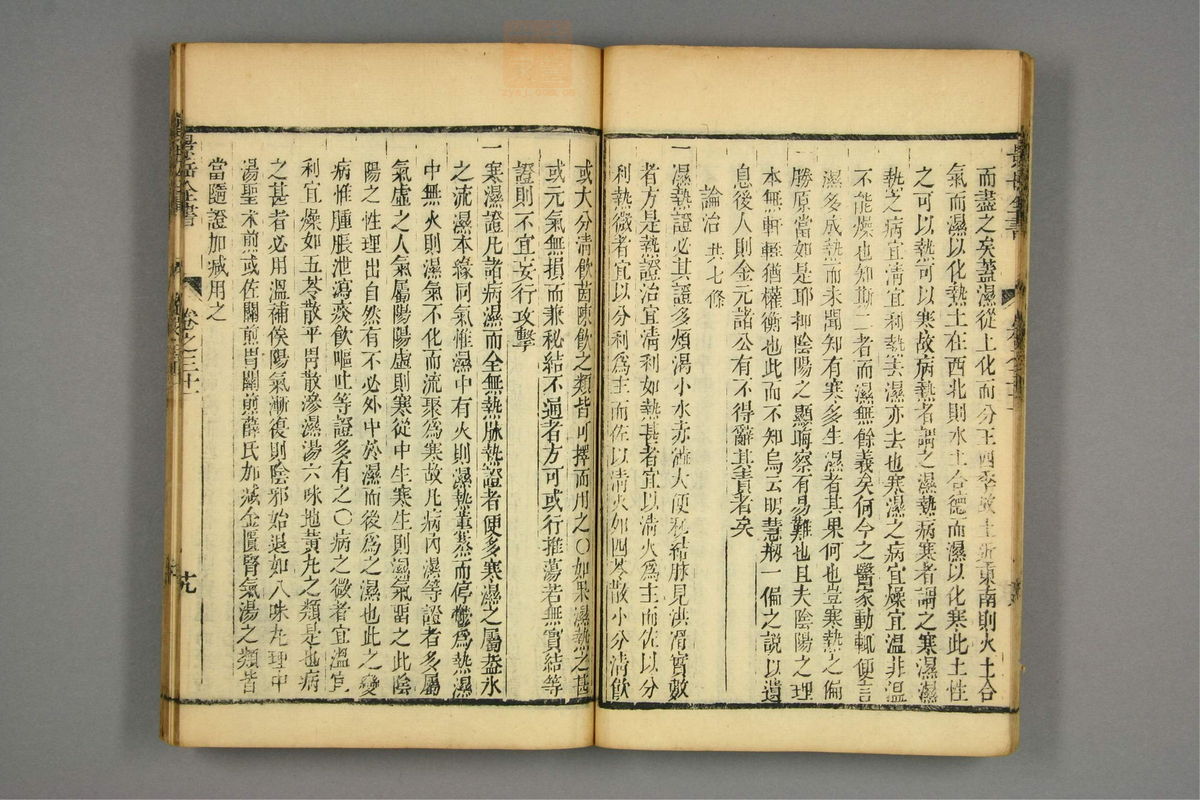 而盡之矣蓋濕從土化而分王四季故土近東南則火土合
氣而濕以化熱土在西北則水土合德而濕以化寒此土性
之可以熱可以寒故病熱者謂之濕熱病寒者謂之寒濕濕
熱之病宜清宜利熱去濕亦去也寒濕之病宜燥宜溫非溫
不能燥也知斯二者而濕無餘義矣何今之醫家動輒便言
濕多成熱而未聞知有寒多生濕者其果何也豈寒熱之偏
勝原當如是耶抑陰陽之顯晦察有易難也且夫陰陽之理
本無軒輊猶權衡也此而不知烏云明慧創一偏之說以遺
息後人則金元諸公有不得辭其責者矣
論治 共七條
一濕熱證必其證多煩渴小水赤澁大便秘結脉見洪滑實數
者方是熱證治宜清利如熱甚者宜以清火爲主而佐以分
利熱微者宜以分利爲主而佐以清火如四苓散小分清飲
或大分清飲茵陳飲之類皆可擇而用之〇如果濕熱之甚
或元氣無損而兼秘結不通者方可或行推蕩若無實結等
證則不宜妄行攻擊
一寒濕證凡諸病濕而全無熱脉熱證者便多寒濕之屬蓋水
之流濕本緣同氣惟濕中有火則濕熱薰蒸而停鬱爲熱濕
中無火則濕氣不化而流聚爲寒故凡病內濕等證者多屬
氣虛之人氣屬陽陽虛則寒從中生寒生則濕氣留之此陰
陽之性理出自然有不必外中於濕而後爲之濕也此之變
病惟腫脹泄瀉痰飲嘔吐等證多有之〇病之微者宜溫宜
利宜燥如五苓散平胃散滲濕湯六味地黃丸之類是也病
之甚者必用溫補俟陽氣漸復則陰邪始退如八味丸理中
湯聖朮煎或佐關煎胃關煎薛氏加減金匱腎氣湯之類皆
當隨證加減用之
景岳全書
卷之三十一